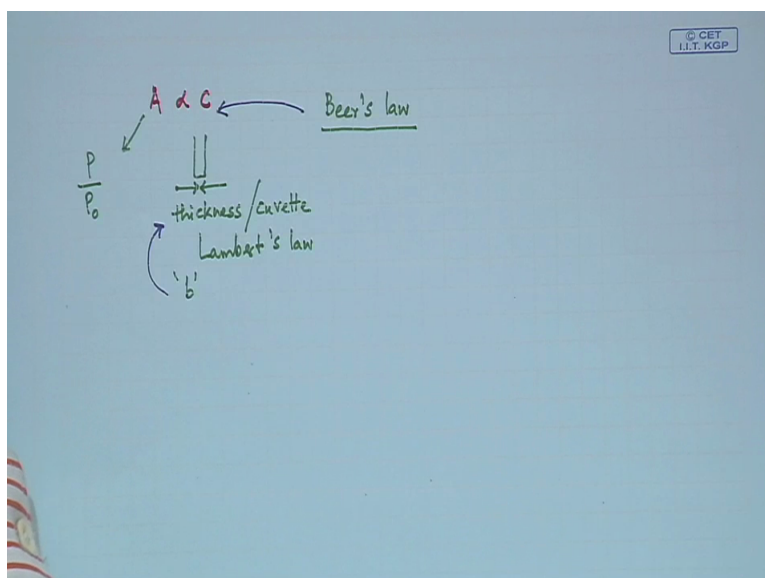 © CET
I.I.T. KGP
A α C
Beer's law
P
P₀
thickness / cuvette
Lambert's law
'b'